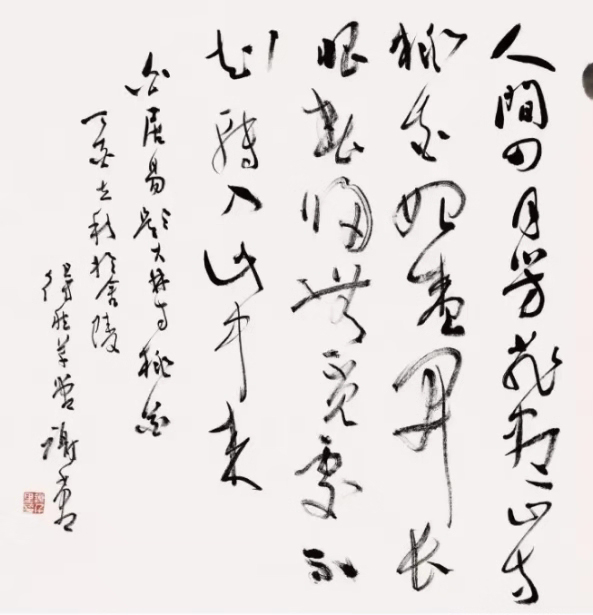 人間四月芳菲尽山寺
桃花始盛开长
恨春歸無覓處不
知轉入此中来
白居易題大林寺桃花
丁亥立秋於金陵
草堂 谢